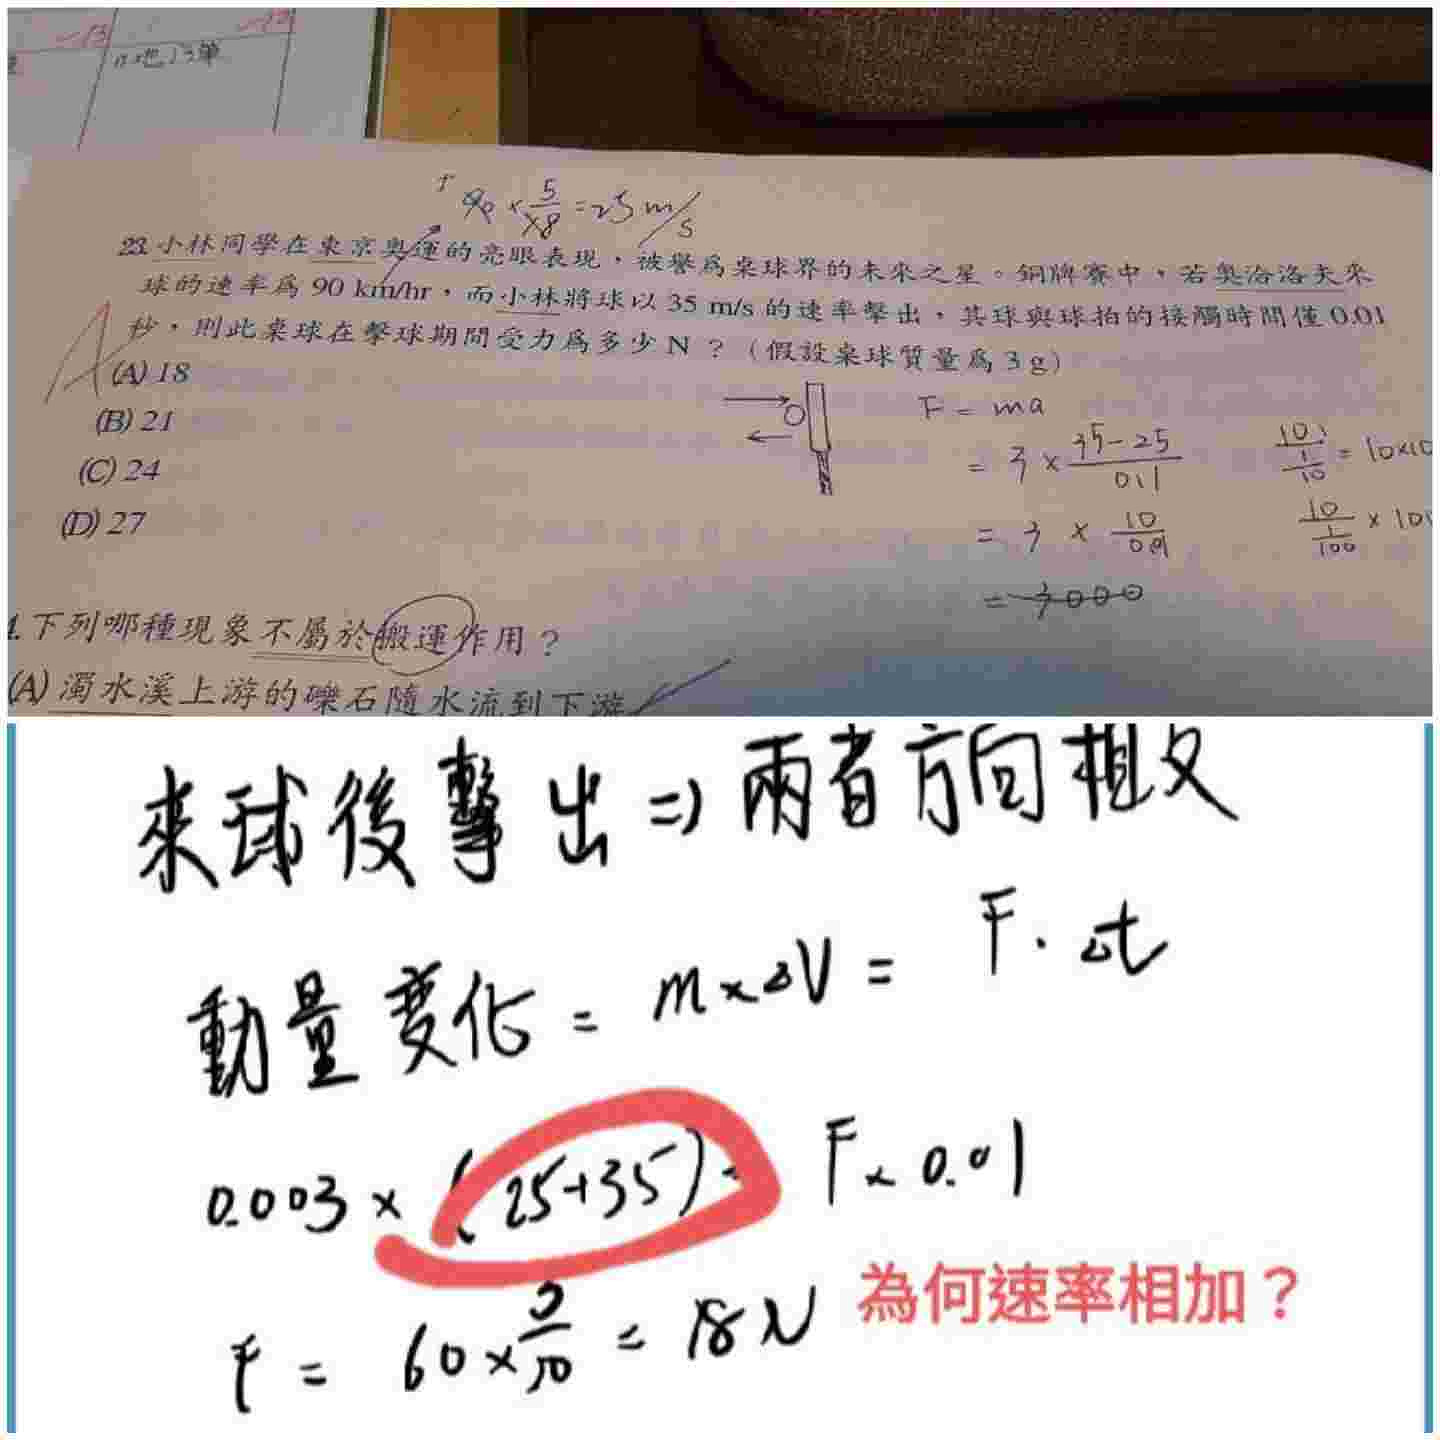 -13
-12
90 × 5/18 = 25 m/s
23. 小林同學在東京奧運的亮眼表現,被譽為桌球界的未來之星。銅牌賽中,若奧洽洛夫來
球的速率為 90 km/hr,而小林將球以 35 m/s 的速率擊出,其球與球拍的接觸時間僅 0.01
秒,則此桌球在擊球期間受力為多少 N ?(假設桌球質量為 3 g)
A
(A) 18
(B) 21
(C) 24
(D) 27
F = ma
= 3 × 35-25/0.1
= 3 × 10/0.01
= 3000
10/1/10 = 10×10
10/1/100 × 100
下列哪種現象不屬於搬運作用?
(A) 濁水溪上游的礫石隨水流到下游
來球後擊出 => 兩者方向相反
動量變化 = m×ΔV = F·Δt
0.003 × (25+35) = F × 0.01
為何速率相加?
F = 60 × 3/10 = 18 N